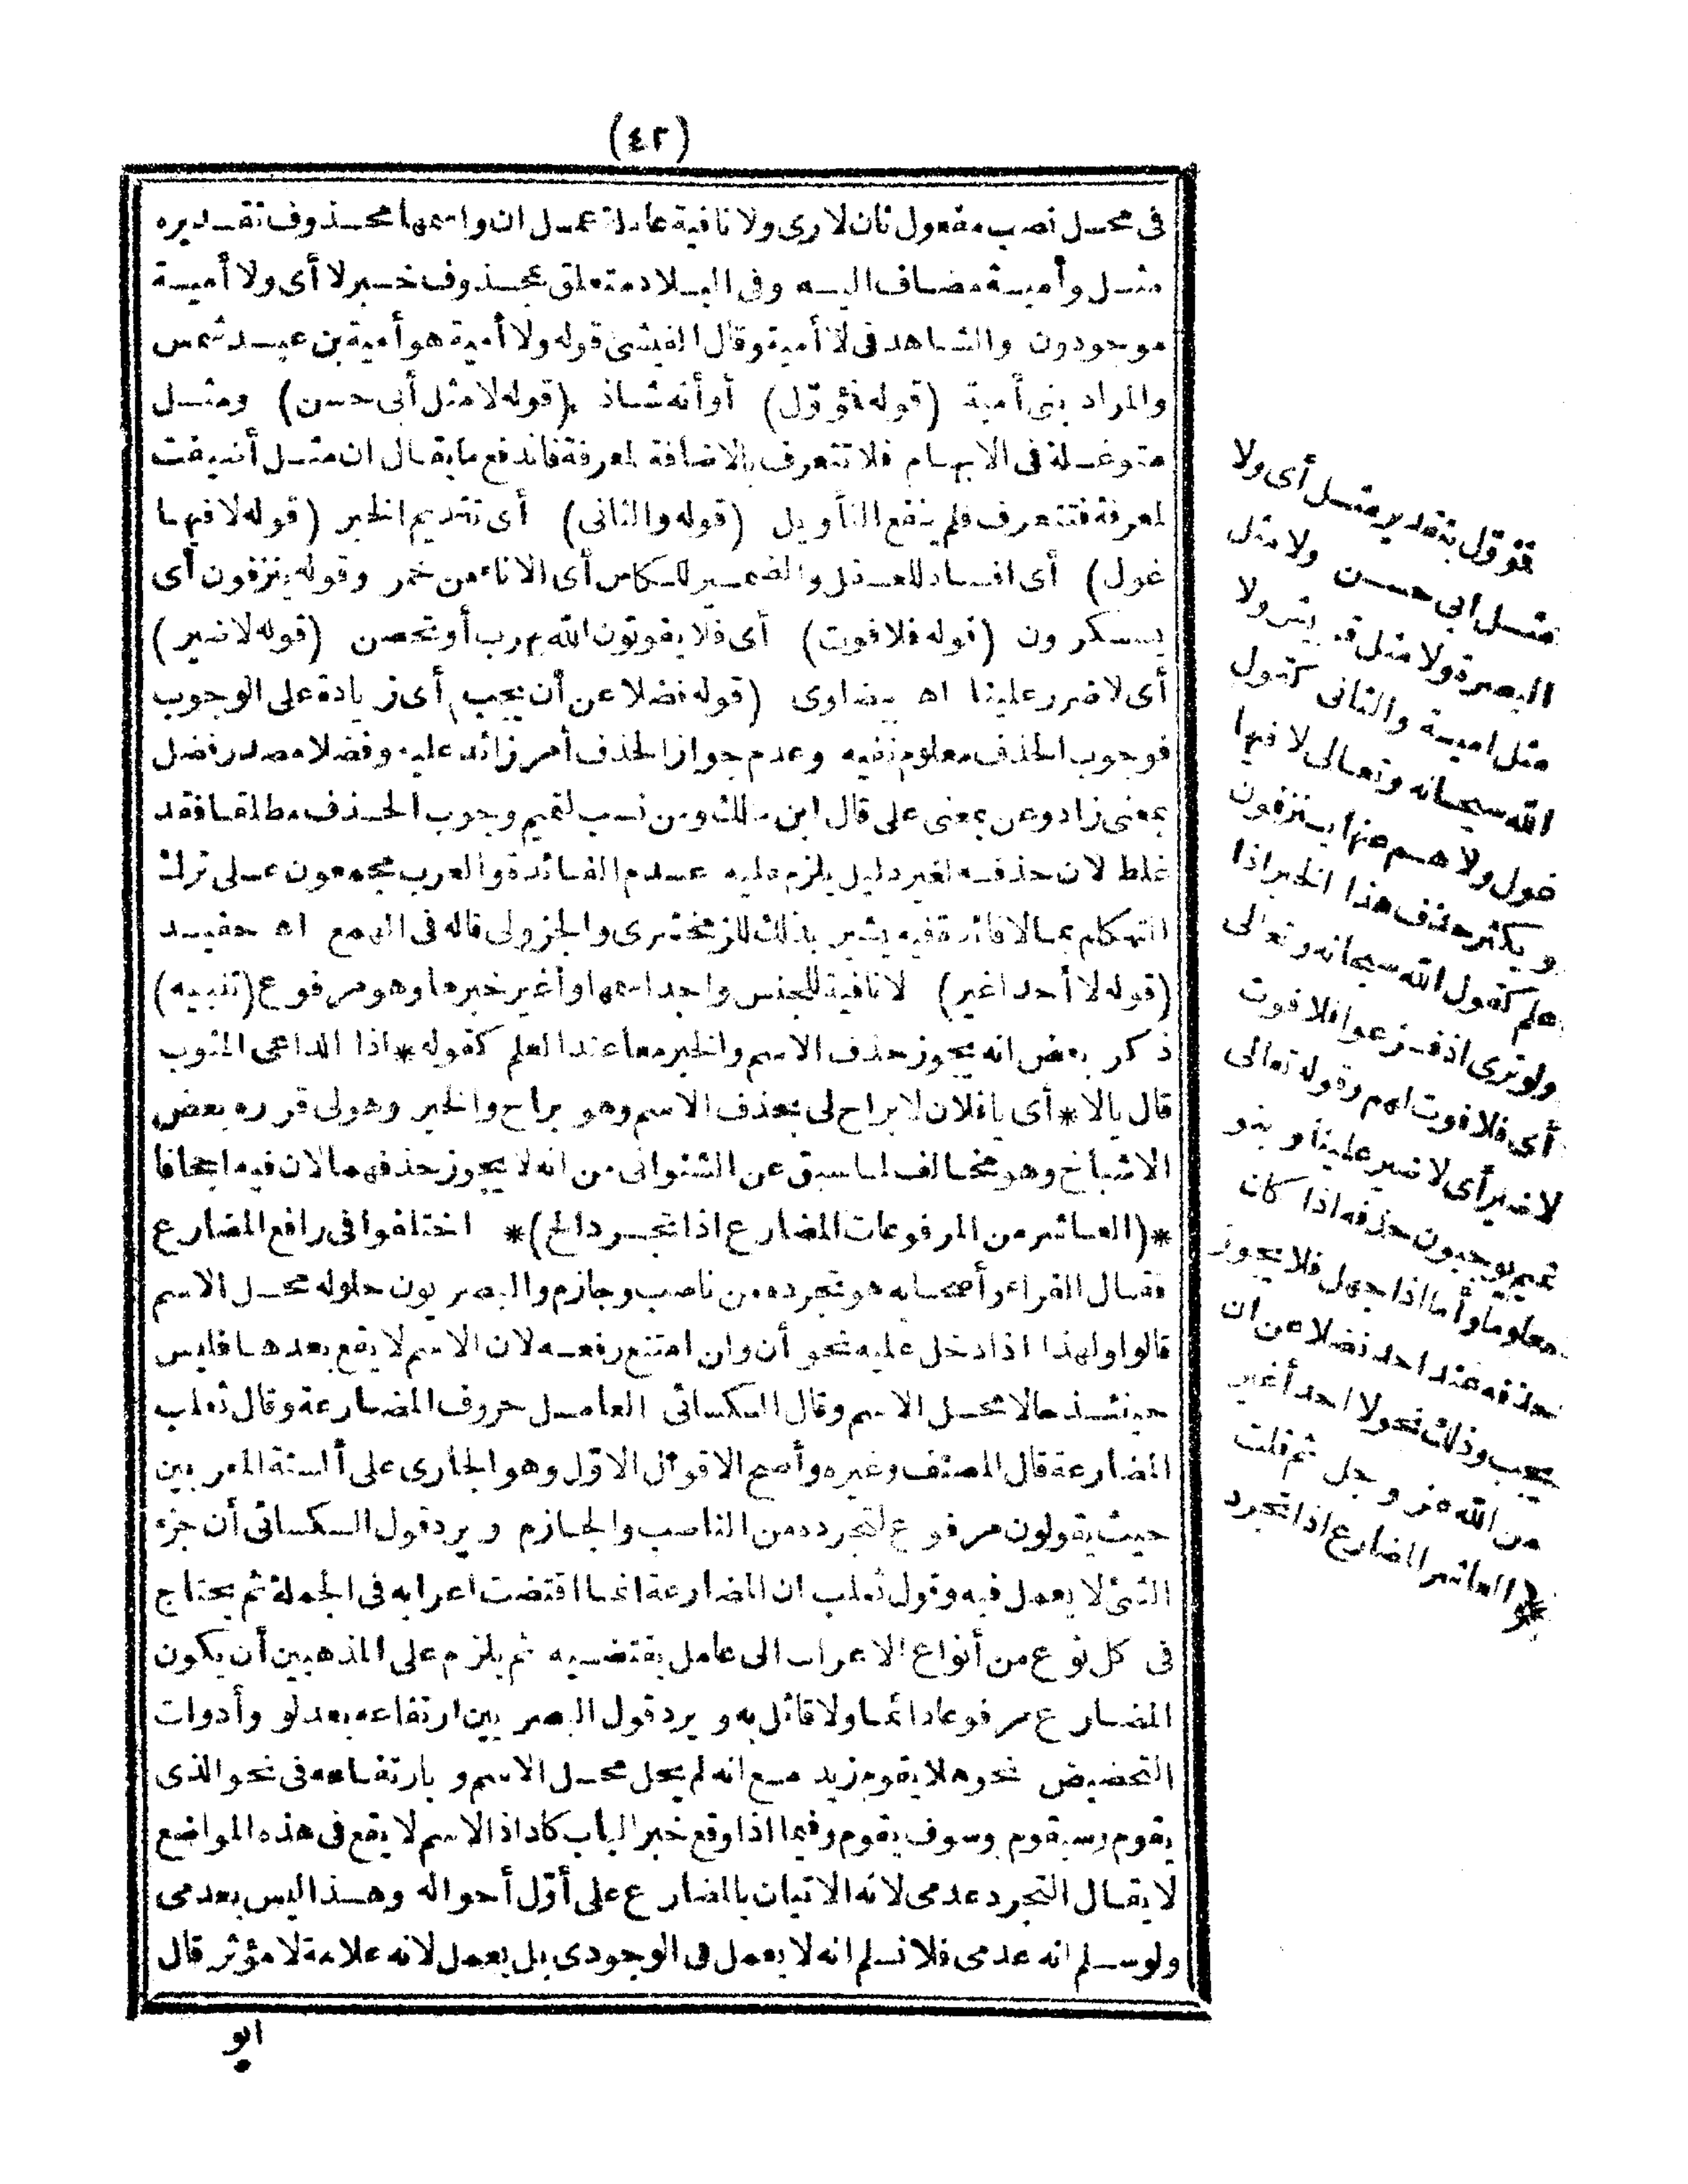 (٤٢)
فى محل نصب مفعول ثان لارى ولا نافية عاملة عمل ان واسمها محذوف تقديره
مثل وأمية مضاف اليه وفى البلاد متعلق بمحذوف خبر لا أى ولا أمية
موجودون والشاهد فى لا أمية وقال الفيشى قوله ولا أمية هو أمية بن عبد شمس
والمراد بنى أمية (قوله فمؤوّل) أو أنه شاذ (قوله لا مثل أبى حسن) ومثل
متوغلة فى الابهام فلا تتعرف بالاضافة لمعرفة فاندفع ما يقال ان مثل أضيفت
لمعرفة فتتعرف فلم ينفع التأويل (قوله والثانى) أى تقديم الخبر (قوله لا فيها
غول) أى افساد للعقل والضمير للكاس أى الاناء من خمر وقوله ينزفون أى
يسكرون (قوله فلا فوت) أى فلا يفوتون الله بهرب أو تحصن (قوله لا ضير)
أى لا ضرر علينا اه بيضاوى (قوله فضلا عن أن يجب) أى زيادة على الوجوب
فوجوب الحذف معلوم نفيه وعدم جواز الحذف أمر زائد عليه وفضلا مصدر فضل
بمعنى زاد وعن بمعنى على قال ابن مالك ومن نسب لتميم وجوب الحذف مطلقا فقد
غلط لان حذفه لغير دليل يلزم عليه عدم الفائدة والعرب مجمعون على ترك
التكلم بما لا فائدة فيه يشير بذلك للزمخشرى والجزولى قاله فى الهمع اه حفيد
(قوله لا أحد اغير) لا نافية للجنس واحد اسمها وأغير خبرها وهو مرفوع (تنبيه)
ذكر بعض انه يجوز حذف الاسم والخبر معا عند العلم كقوله * اذا الداعى المثوب
قال يالا * أى يا فلان لا براح لى بحذف الاسم وهو براح والخبر وهو لى قرره بعض
الاشياخ وهو مخالف لما سبق عن الشنوانى من انه لا يجوز حذفهما لان فيه اجحافا
*(العاشر من المرفوعات المضارع اذا تجرد الخ)* اختلفوا فى رافع المضارع
فقال الفراء وأصحابه هو تجرده من ناصب وجازم والبصريون حلوله محل الاسم
قالوا ولهذا اذا دخل عليه نحو أن ولن امتنع رفعه لان الاسم لا يقع بعدها فليس
حينئذ حالا محل الاسم وقال الكسائى العامل حروف المضارعة وقال ثعلب
المضارعة قال المصنف وغيره وأصح الاقوال الاوّل وهو الجارى على ألسنة المعربين
حيث يقولون مرفوع لتجرده من الناصب والجازم ويرد قول الكسائى أن جزء
الشئ لا يعمل فيه وقول ثعلب ان المضارعة انما اقتضت اعرابه فى الجملة ثم يحتاج
فى كل نوع من أنواع الاعراب الى عامل يقتضيه ثم يلزم على المذهبين أن يكون
المضارع مرفوعا دائما ولا قائل به ويرد قول البصريين ارتفاعه بعد لو وأدوات
التحضيض نحو هلا يقوم زيد مع انه لم يحل محل الاسم وبارتفاعه فى نحو الذى
يقوم وسيقوم وسوف يقوم وفيما اذا وقع خبر الباب كاد اذ الاسم لا يقع فى هذه المواضع
لا يقال التجرد عدمى لانه الاتيان بالمضارع على أوّل أحواله وهذا ليس بعدمى
ولو سلم انه عدمى فلا نسلم انه لا يعمل فى الوجودى بل يعمل لانه علامة لا مؤثر قال
ابو
فمؤوّل بتقدير مثل أى ولا
مثل ابى حسن ولا مثل
البصرة ولا مثل قريش ولا
مثل امية والثانى كقول
الله سبحانه وتعالى لا فيها
غول ولا هم عنها ينزفون
ويكثر حذف هذا الخبر اذا
علم كقول الله سبحانه وتعالى
ولو ترى اذ فزعوا فلا فوت
أى فلا فوت لهم وقوله تعالى
لا ضير أى لا ضير علينا وبنو
تميم يوجبون حذفه اذا كان
معلوما وأما اذا جهل فلا يجوز
حذفه عند احد فضلا عن ان
يجب وذلك نحو لا احد أغير
من الله عز وجل ثم قلت
*(والعاشر المضارع اذا تجرد